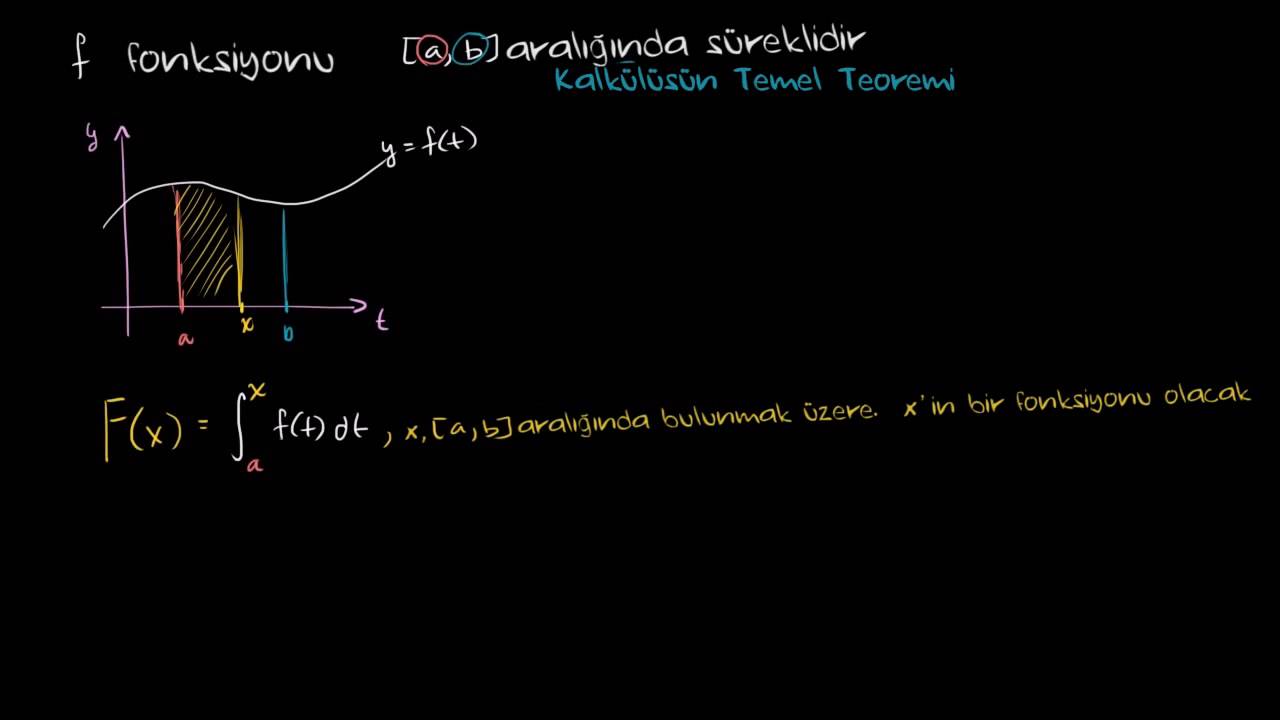 f fonksiyonu [a, b] aralığında süreklidir
Kalkülüsün Temel Teoremi
y
y = f(t)
a
x
b
t
F(x) = ∫ₐˣ f(t) dt , x, [a, b] aralığında bulunmak üzere. x'in bir fonksiyonu olacak